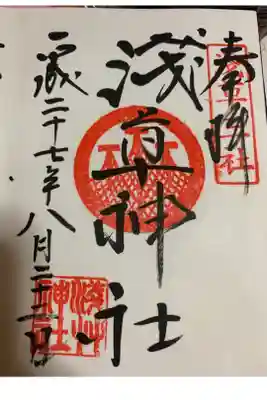 奉拝
浅草神社
平成二十七年八月二十二日
淺草神社